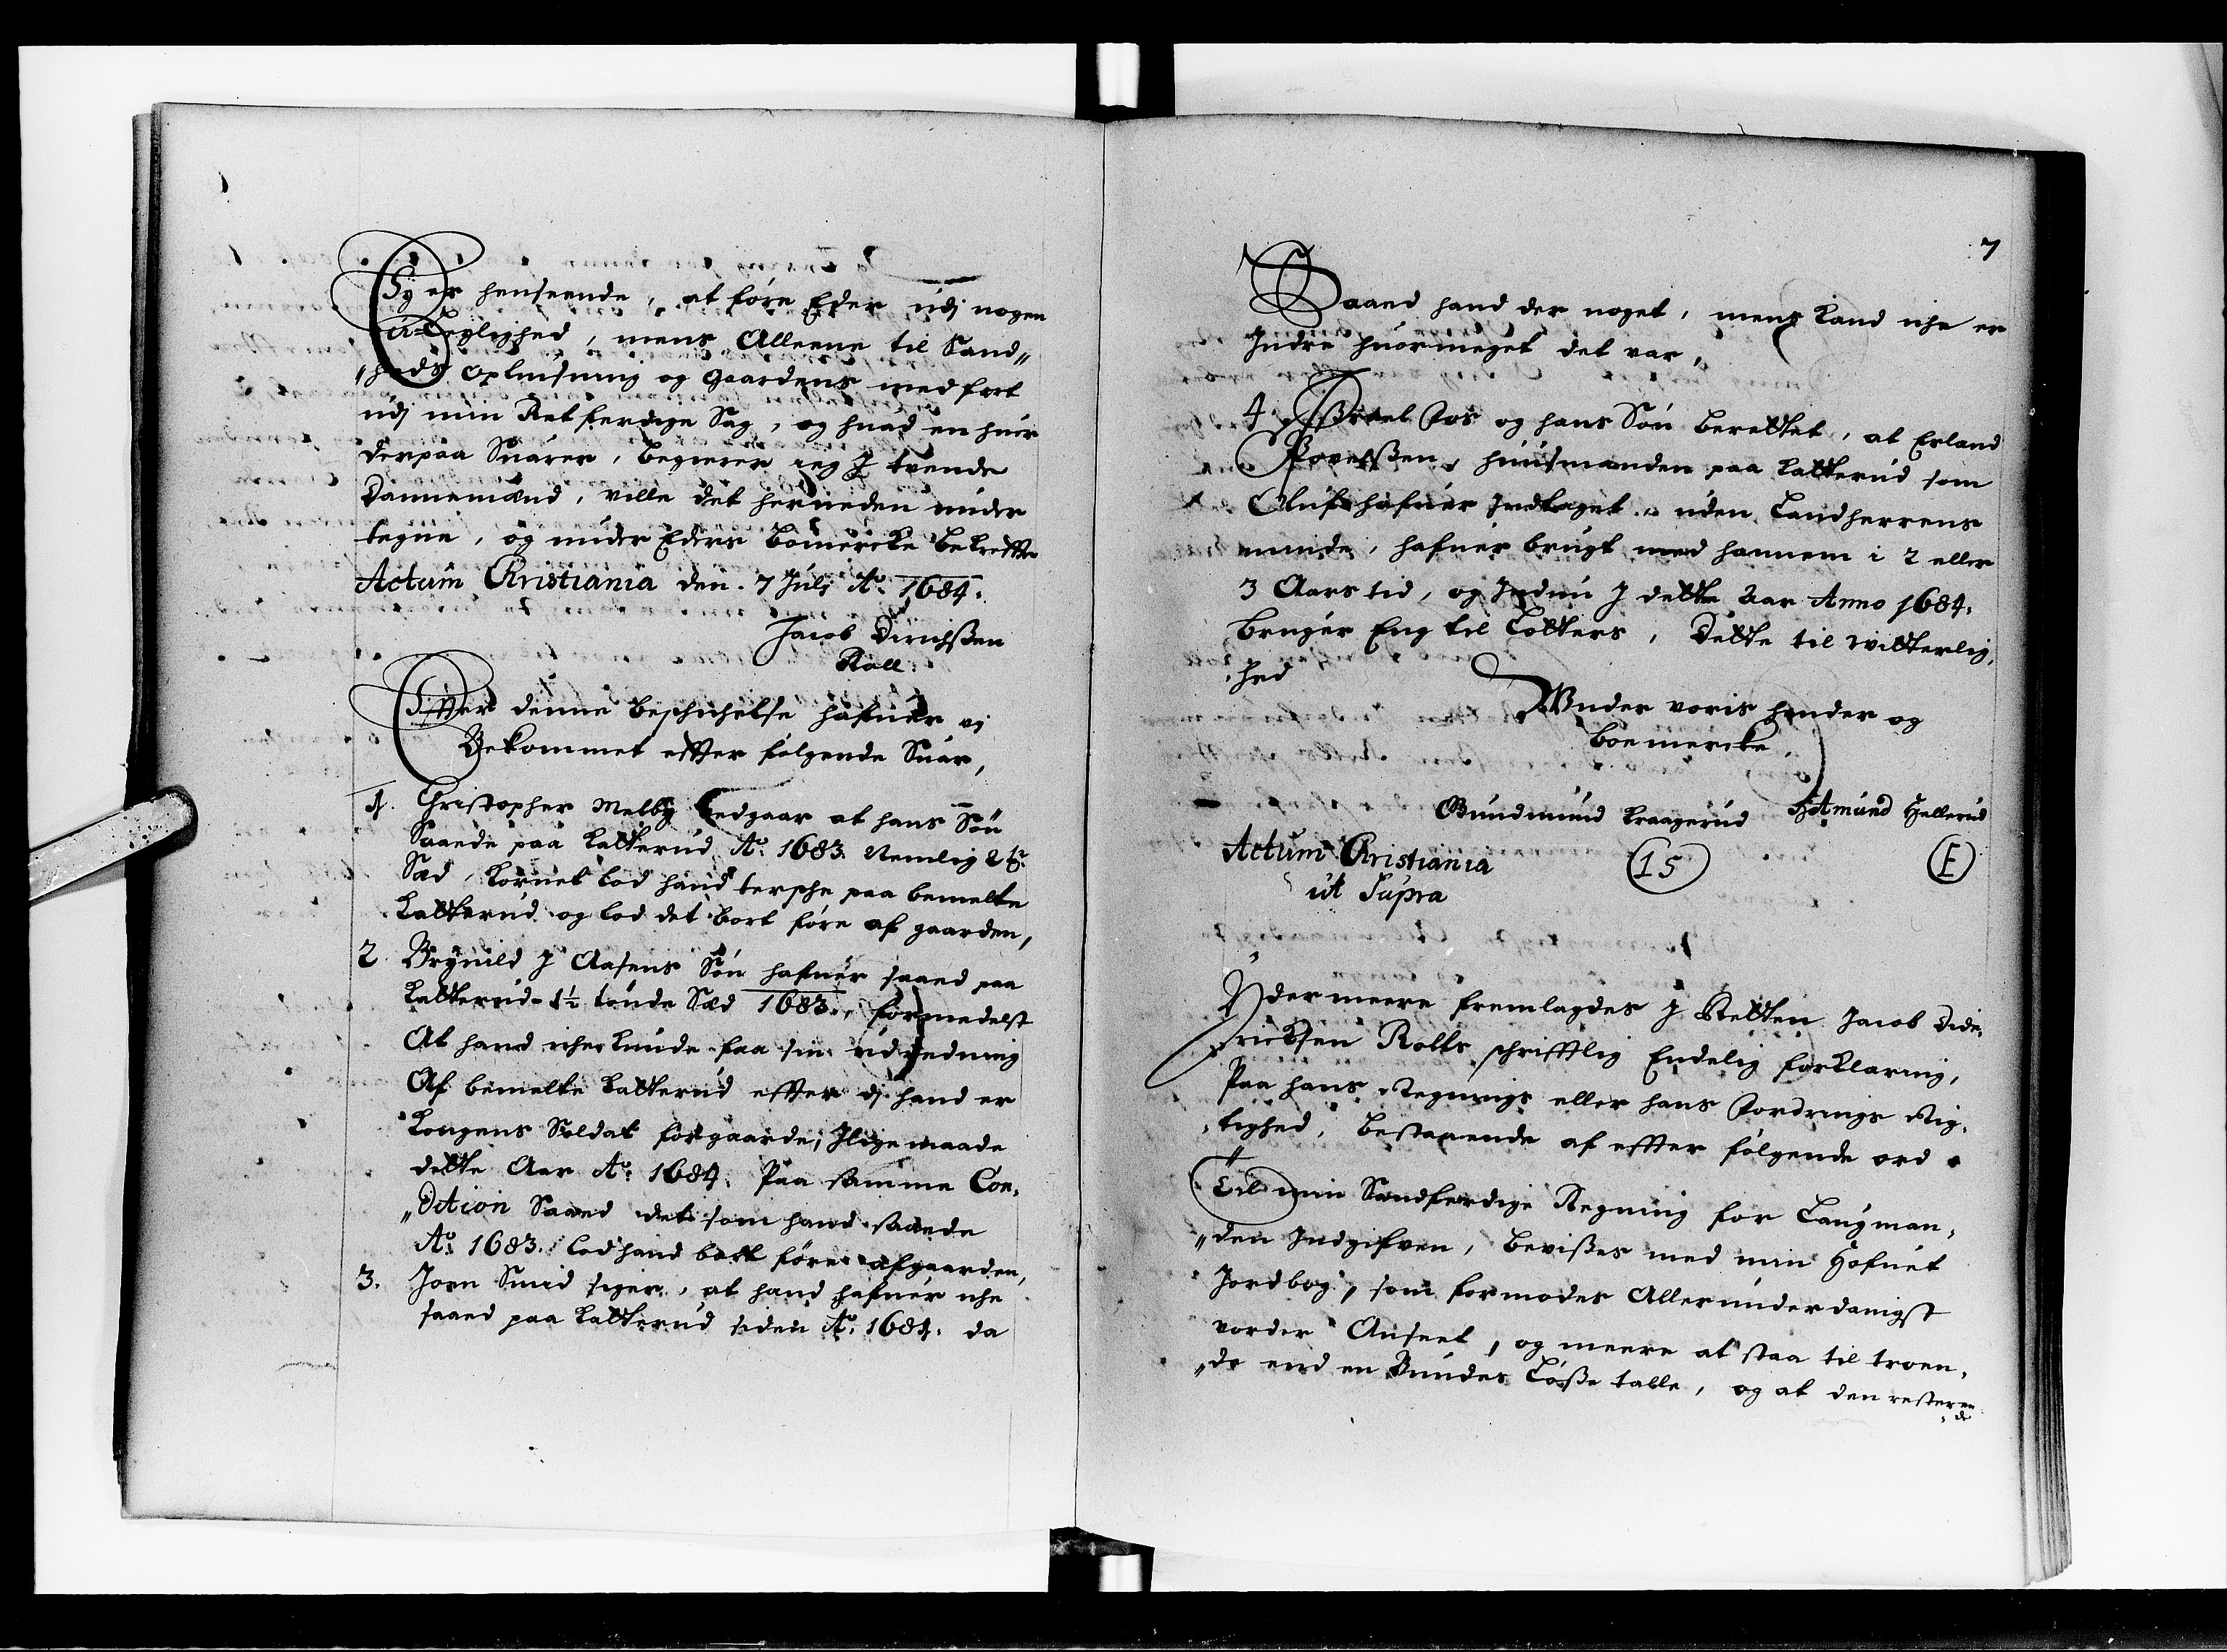 Ey er henseende, at føre Eder udj nogen
u-Leylighed, mens Alleene til Sand„
„heds oplysning og gaardens medfart
udj min Retferdige Sag, og huad en huer
derpaa Suarer, begierer ieg J tvende
Dannemænd, ville det herneden under
tegne, og under Eders Bomercke bekreffte
Actum Christiania den 7 Julj Aº 1684.
Jacob Dirichßen
Roll.
Effter denne beschickelse hafuer vj
Bekommet effter følgende Suar,
1. Christopher Melby Vedgaar at hans Søn
Saaede paa Katterud Aº 1683. Nemlig 2 tr
Sæd, kornet lod hand tersche paa bemelte
Katterud og lod det bort føre af gaarden,
2. Brynild J Aasens Søn hafuer saaed paa
Katterud 1½ tønde Sæd 1683., formedelst
At hand iche kunde faa sin udredning
Af bemelte Katterud effter dj hand er
Kongens Soldat for gaarde, J lige maade
dette Aar Aº 1684. Paa samme Con„
„Dition Saaed det som hand saaede
Aº 1683. lod hand bort føre af gaarden,
3. Joen Smid siger, at hand hafuer iche
saaed paa Katterud siden Aº 1681. da
7
Saaed hand der noget, mens kand iche er
Jndre huormeget det var,
4. Jßrael Foß og hans Søn berettet, at Erland
Povelßen, huusmanden paa Katterud som
Oluf hafuer Jndtaget, uden Landherrens
minde, hafuer brugt med hannem i 2 eller
3 Aars tid, og Jndnu J dette Aar Anno 1684.
bruger Eng til Lotters, Dette til witterlig„
„hed
Wnder voris hender og
boemercke,
Gundmund Kraagerud Amund Hellerud
Actum Christiania
15 E
ut Supra
Ydermeere fremlagdes J Retten Jacob Dide„
„ricksen Rolls schrifftlig Endelig forklaring,
Paa hans Regnings eller hans Fordrings Rig„
„tighed, bestaaende af effter følgende ord.
Til min Sandferdige Regning for Laugman„
„den Jndgifven, bevißes med min Hofuet
Jordbog, som formodes Allerunderdanigst
vorder Anseet, og meere at staa til troen„
„de end en Bundes Løße talle, og at den resteren
„de